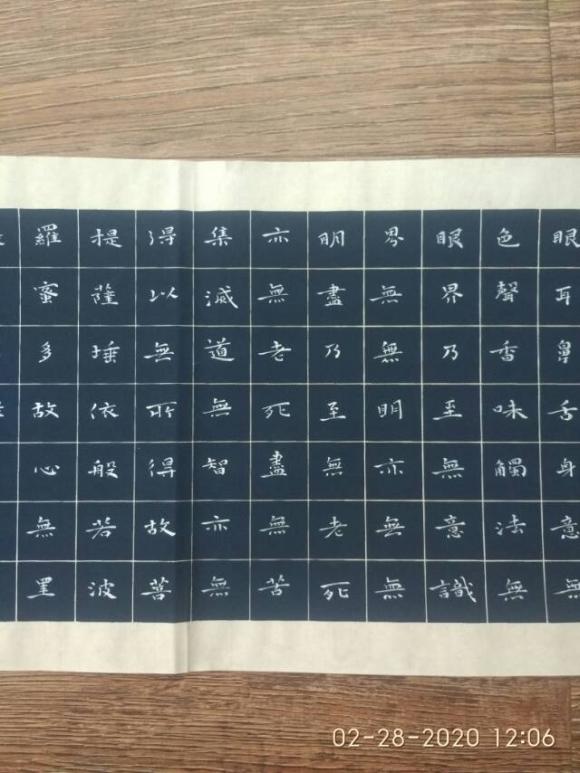 眼耳鼻舌身意無
色聲香味觸法無
眼界乃至無意識
界無無明亦無無
明盡乃至無老死
亦無老死盡無苦
集滅道無智亦無
得以無所得故菩
提薩埵依般若波
羅蜜多故心無罣
02-28-2020 12:06